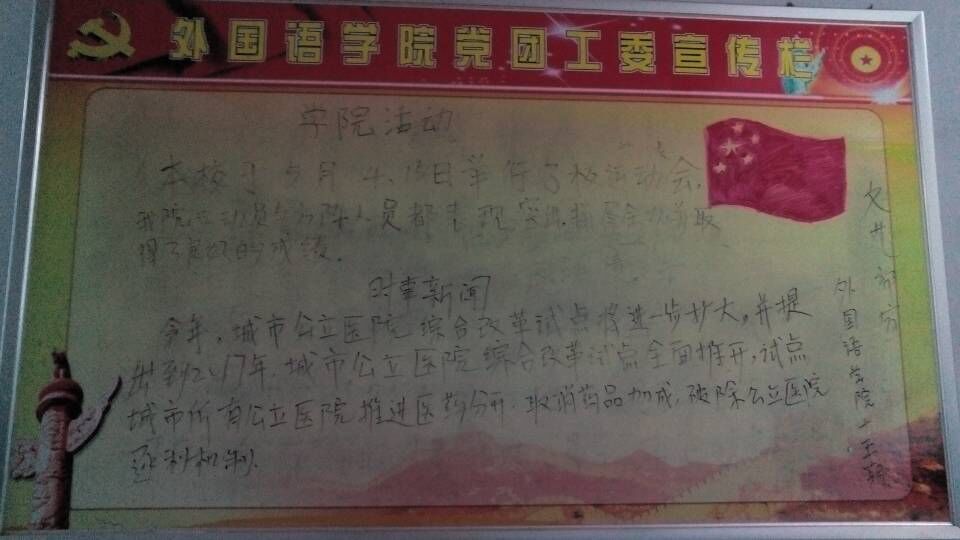 外国语学院党团工委宣传栏
学院活动
本校于5月4、15日举行了校运动会,
我院运动员 员都表现突出 取
得了 的成绩。
时事新闻
今年,城市公立医院综合改革试点将进一步扩大,并提
出到2017年,城市公立医院综合改革试点全面推开,试点
城市所有公立医院推进医药分开,取消药品加成,破除公立医院
逐利机制.
外国语学院